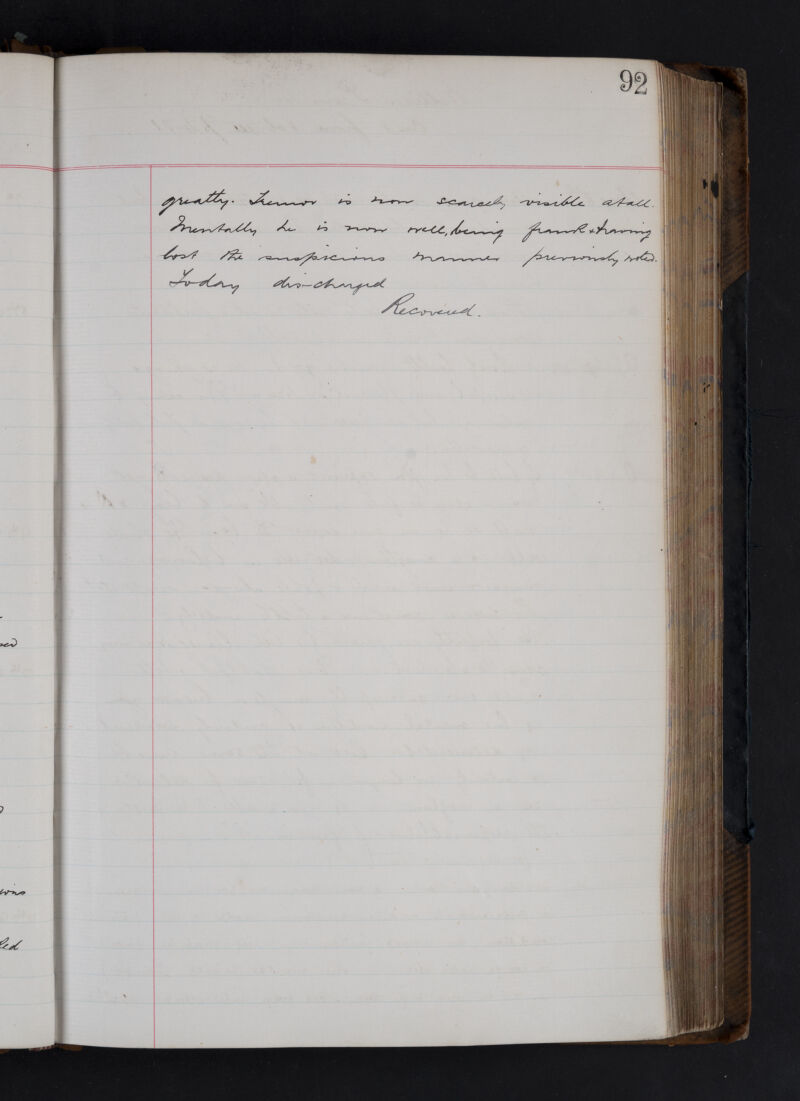 92
greatly. Tremor is now scarcely visible at all.
Mentally he is now well, being frank & having
lost the suspicious manner previously noted.
Today discharged
Recovered.